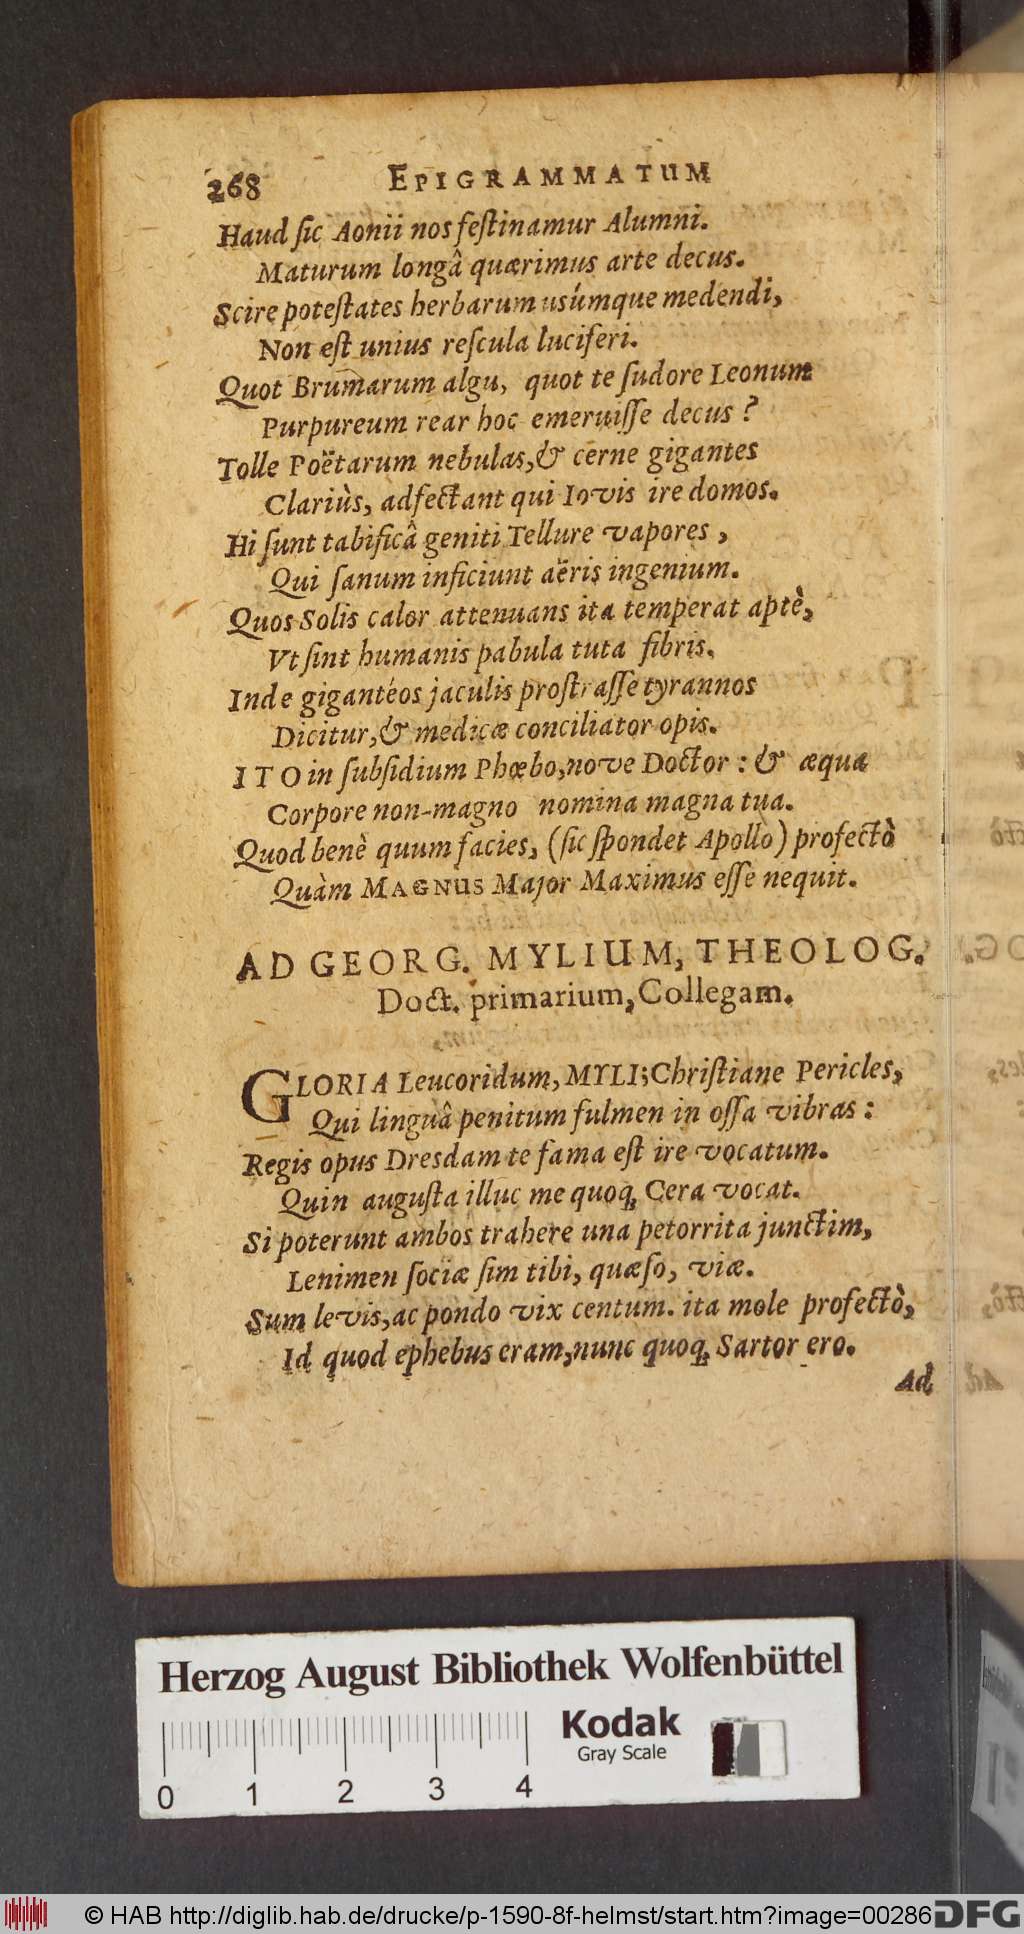 268 EPIGRAMMATUM
Haud ſic Aonii nos feſtinamur Alumni.
Maturum longâ quærimus arte decus.
Scire poteſtates herbarum usúmque medendi,
Non eſt unius reſcula luciferi.
Quot Brumarum algu, quot te ſudore Leonum
Purpureum rear hoc emeruiſſe decus?
Tolle Poëtarum nebulas,& cerne gigantes
Clariùs, adfectant qui Iovis ire domos.
Hi ſunt tabificâ geniti Tellure vapores,
Qui ſanum inficiunt aëris ingenium.
Quos Solis calor attenuans ita temperat aptè,
Vt ſint humanis pabula tuta fibris.
Inde gigantéos jaculis proſtraſſe tyrannos
Dicitur,& medicæ conciliator opis.
ITO in ſubſidium Phœbo,nove Doctor: & æqua
Corpore non-magno nomina magna tua.
Quod benè quum facies, (ſic ſpondet Apollo) profectò
Quàm MAGNUS Major Maximus eſſe nequit.
AD GEORG. MYLIUM, THEOLOG.
Doct. primarium, Collegam.
GLORIA Leucoridum, MYLI; Chriſtiane Pericles,
Qui linguâ penitum fulmen in oſſa vibras:
Regis opus Dresdam te fama eſt ire vocatum.
Quin auguſta illuc me quoq́; Cera vocat.
Si poterunt ambos trahere una petorrita junctim,
Lenimen ſociæ ſim tibi, quæſo, viæ.
Sum levis,ac pondo vix centum. ita mole profectò,
Id quod ephebus eram,nunc quoq́; Sartor ero.
Ad
Herzog August Bibliothek Wolfenbüttel
Kodak
Gray Scale
0 1 2 3 4
© HAB http://diglib.hab.de/drucke/p-1590-8f-helmst/start.htm?image=00286
DFG